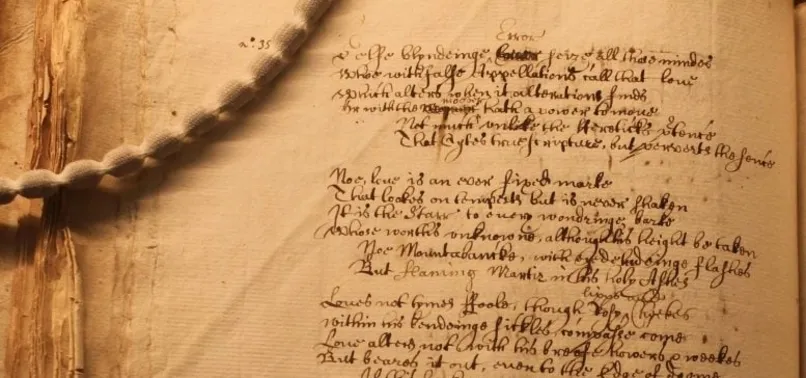 Error
Selfe blyndeinge seize all those mindes
Who with false Appellations call that love
which alters when it alterations finds
Or with the mover hath a power to move
Not much unlike the Hereticks ptence
That Cytes true scripture, but perverts the sence
nº: 35
Noe, love is an ever fixed marke
That lookes on tempests but is never shaken
It is the Starr to every wondringe barke
Whose worth's unknowne, although his height be taken
Noe Mountabancke, with eye-deludeinge flashes
But flameing Martir in his holy Ashes
lipps and
Loves not tymes Foole, though Rosy Cheekes
within his bendeinge sickles compasse come
Love alters not with his breife howers & weekes
But beares it out, even to the Edge of doome